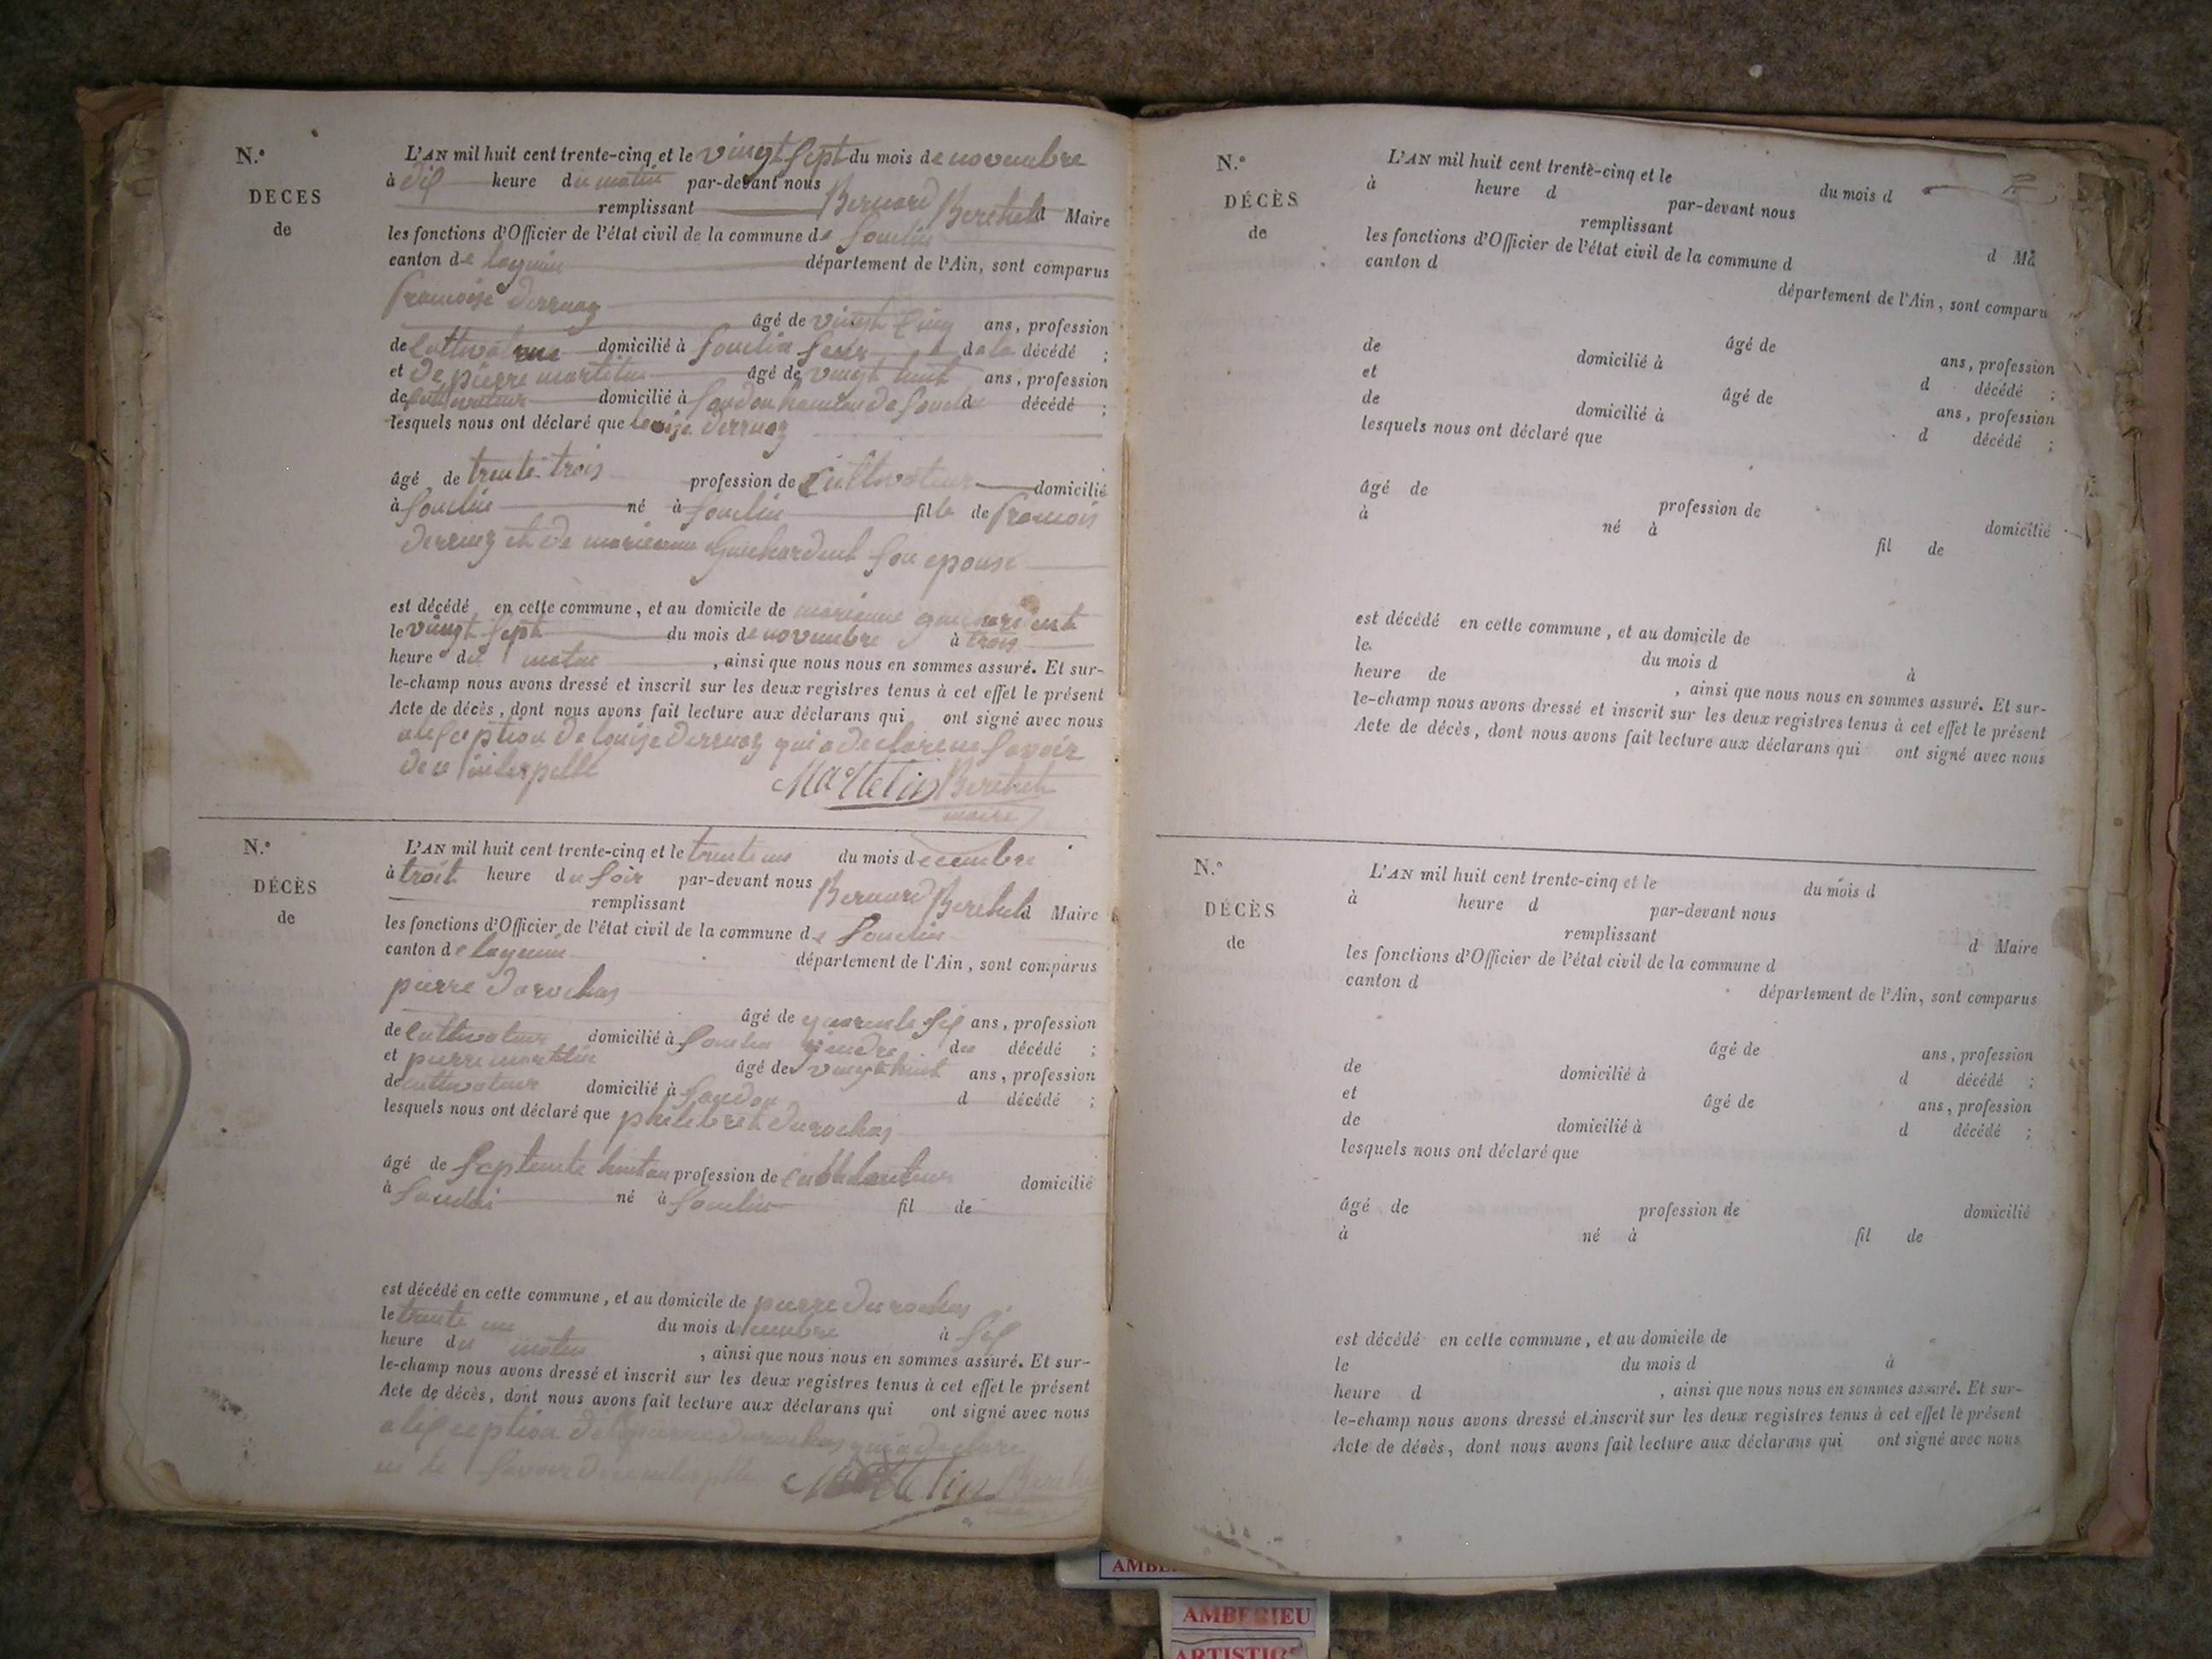 N.º
DECES
de
L'AN mil huit cent trente-cinq et le vingt sept du mois de novembre
à dix heure du matin par-devant nous Bernard Berthet
remplissant d Maire
les fonctions d'Officier de l'état civil de la commune de Souclin
canton de lagnieu département de l'Ain, sont comparus
francoise derruaz
âgé de vingt cinq ans, profession
de cultivatrice domicilié à Souclin Seur de la décédé ;
et de pierre martelin âgé de vingt huit ans, profession
de cultivateur domicilié à Soudon hameau de Souclin d décédé ;
lesquels nous ont déclaré que louise derruaz
âgé de trente trois profession de cultivateur domicilié
à Souclin né à Souclin fille de francois
derruaz et de marianne Guichardent Son epouse
est décédé en cette commune, et au domicile de marianne guichardent
le vingt sept du mois de novembre à trois
heure du matin , ainsi que nous nous en sommes assuré. Et sur-
le-champ nous avons dressé et inscrit sur les deux registres tenus à cet effet le présent
Acte de décès, dont nous avons fait lecture aux déclarans qui ont signé avec nous
a lexception de louise derruaz qui a declare ne Savoir
de ce interpellé
Martelin Berthet
maire
N.º
DÉCÈS
de
L'AN mil huit cent trente-cinq et le trente un du mois decembre
à troit heure du Soir par-devant nous Bernard Berthet
remplissant d Maire
les fonctions d'Officier de l'état civil de la commune de Souclin
canton de lagnieu département de l'Ain, sont comparus
pierre durochas
âgé de quarante six ans, profession
de cultivateur domicilié à Souclin du décédé ;
et pierre martelin âgé de vingt huit ans, profession
de cultivateur domicilié à Soudon d décédé ;
lesquels nous ont déclaré que philibert durochas
âgé de Septente huit an profession de cultivateur domicilié
à né à Souclin fil de
est décédé en cette commune, et au domicile de pierre durochas
le trente un du mois decembre à Six
heure du matin , ainsi que nous nous en sommes assuré. Et sur-
le-champ nous avons dressé et inscrit sur les deux registres tenus à cet effet le présent
Acte de décès, dont nous avons fait lecture aux déclarans qui ont signé avec nous
a lexception de pierre durochas qui a declare
ne Savoir de ce interpellé Martelin Berthet
N.º
DÉCÈS
de
L'AN mil huit cent trente-cinq et le du mois d
à heure d par-devant nous
remplissant d Ma
les fonctions d'Officier de l'état civil de la commune d
canton d département de l'Ain, sont comparu
âgé de ans, profession
de domicilié à d décédé ;
et âgé de ans, profession
de domicilié à d décédé ;
lesquels nous ont déclaré que
âgé de profession de domicilié
à né à fil de
est décédé en cette commune, et au domicile de
le du mois d à
heure de , ainsi que nous nous en sommes assuré. Et sur-
le-champ nous avons dressé et inscrit sur les deux registres tenus à cet effet le présent
Acte de décès, dont nous avons fait lecture aux déclarans qui ont signé avec nous
N.º
DÉCÈS
de
L'AN mil huit cent trente-cinq et le du mois d
à heure d par-devant nous
remplissant d Maire
les fonctions d'Officier de l'état civil de la commune d
canton d département de l'Ain, sont comparus
âgé de ans, profession
de domicilié à d décédé ;
et âgé de ans, profession
de domicilié à d décédé ;
lesquels nous ont déclaré que
âgé de profession de domicilié
à né à fil de
est décédé en cette commune, et au domicile de
le du mois d à
heure d , ainsi que nous nous en sommes assuré. Et sur-
le-champ nous avons dressé et inscrit sur les deux registres tenus à cet effet le présent
Acte de décès, dont nous avons fait lecture aux déclarans qui ont signé avec nous
AMBERIEU